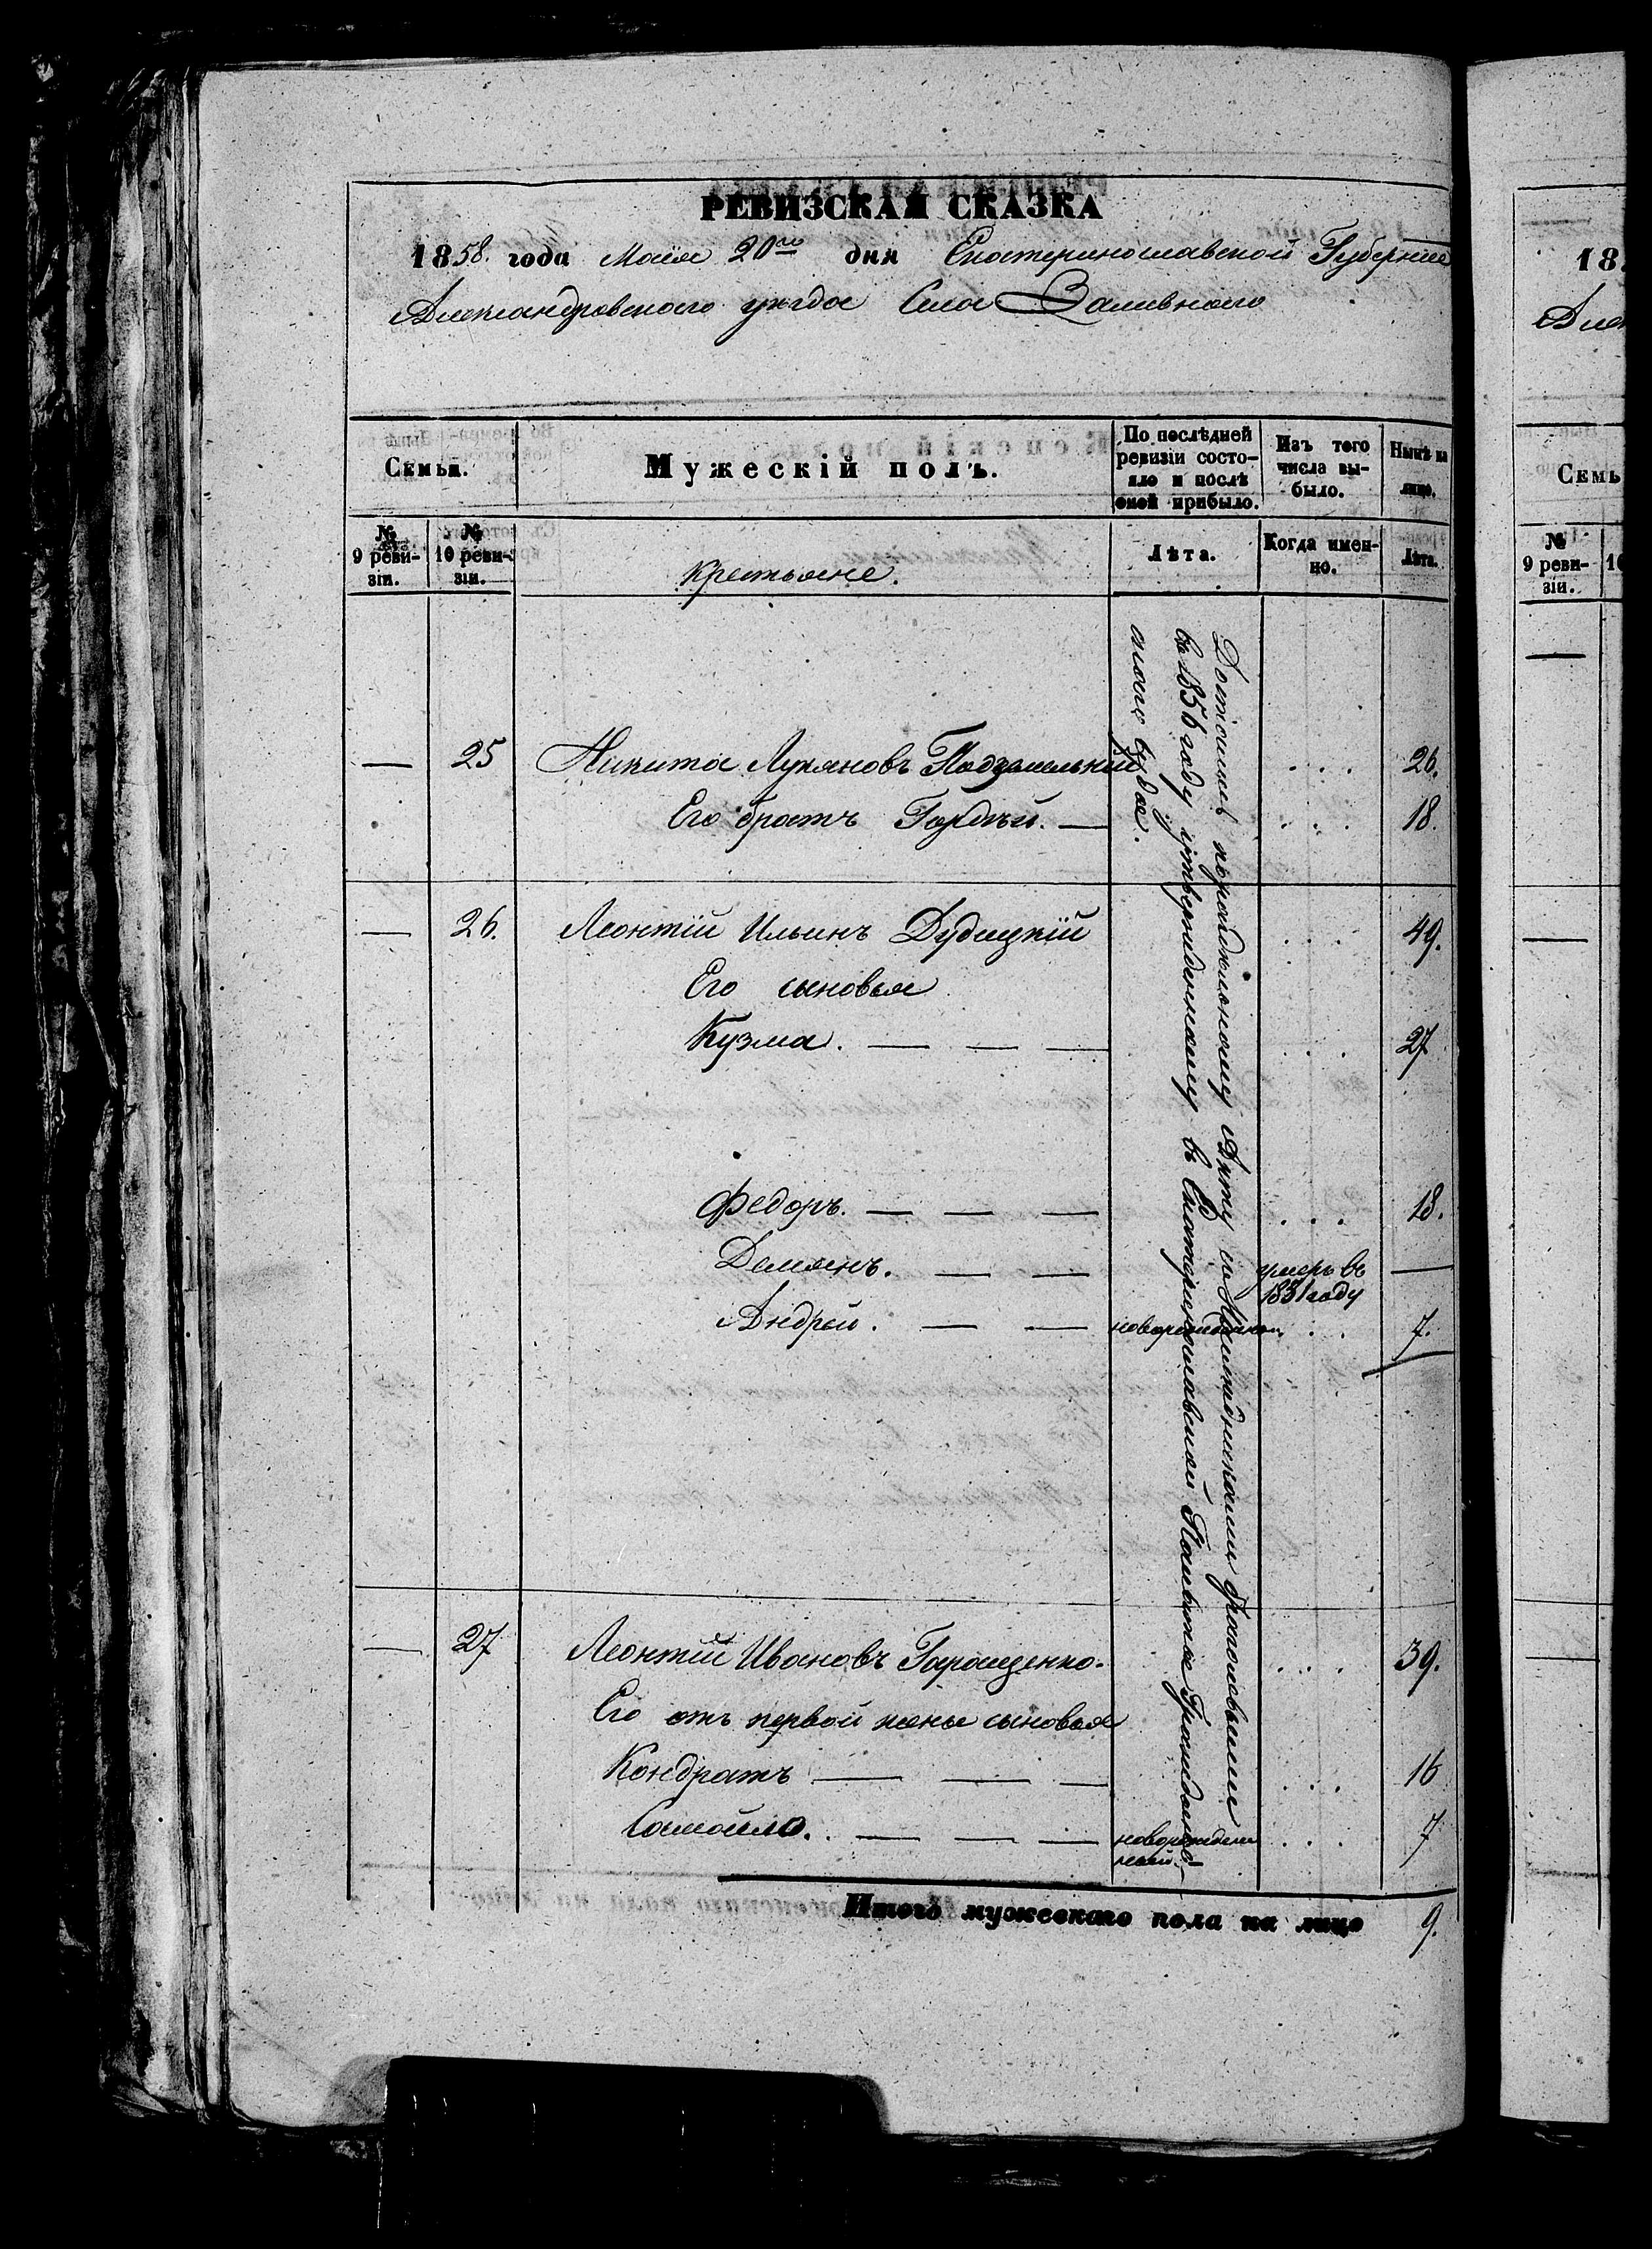 РЕВИЗСКАЯ СКАЗКА
1858. года Маія 20го дня Екатеринославской Губерніи
Александровскаго уѣзда Села Заливнаго
Семьи.
Мужескій полъ.
По послѣдней ревизіи состо-
яло и послѣ
оной прибыло.
Изъ того
числа вы-
было.
Нынѣ на
лицо.
№
9 реви-
зіи.
№
10 реви-
зіи.
Крестьяне.
Лѣта.
Когда имен-
но.
Лѣта.
— 25 Никита Лукяновъ Подзамельний . . . 26.
Его братъ Гордѣй. — . . . 18.
— 26. Леонтій Ильинъ Дудицкій . . . 49.
Его сыновья
Кузма. — — — . . . 27
Федоръ. — — — . . . 18.
Демянъ. — — умеръ въ —
1851 году
Андрей. — — новорожденной . . 7.
— 27 Леонтій Ивановъ Геращенко. . . . 39.
Его отъ первой жены сыновья
Кондратъ — — — . . . 16
Самойло. — — — новорожден . . . 7
ной. —
Достались по раздѣльному Акту съ Наслѣдниками
въ 1856 году утвержденному въ Екатеринославской Палатѣ Гражданс-
каго суда.
Итого мужескаго пола на лицо 9.
18
Алек
Семь
№
9 реви-
зіи.
10
—
—
—